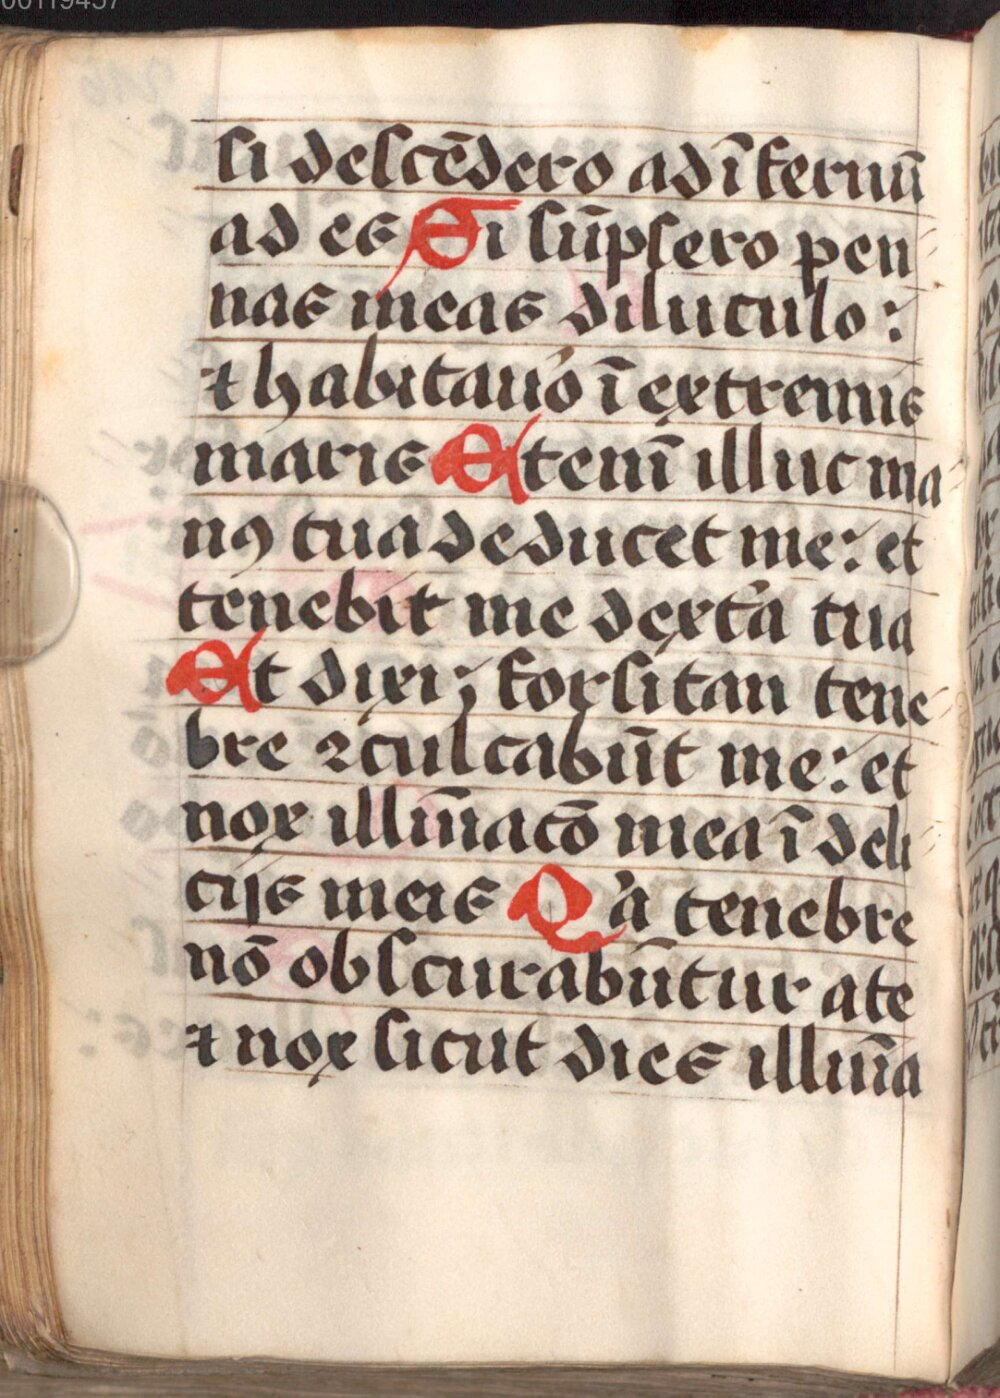 00119457
si descēdero ad īfernū
ad es Si sūpsero pen
nas meas diluculo:
⁊ habitauo ī extremis
maris Etenī illuc ma
nꝰ tua deducet me: et
tenebit me dexta tua
Et dixi; forsitan tene
bre ꝯculcabūt me: et
nox illūīacō mea ī deli
cijs meis Qa tenebre
nō obscurabūtur a te
⁊ nox sicut dies illūīa